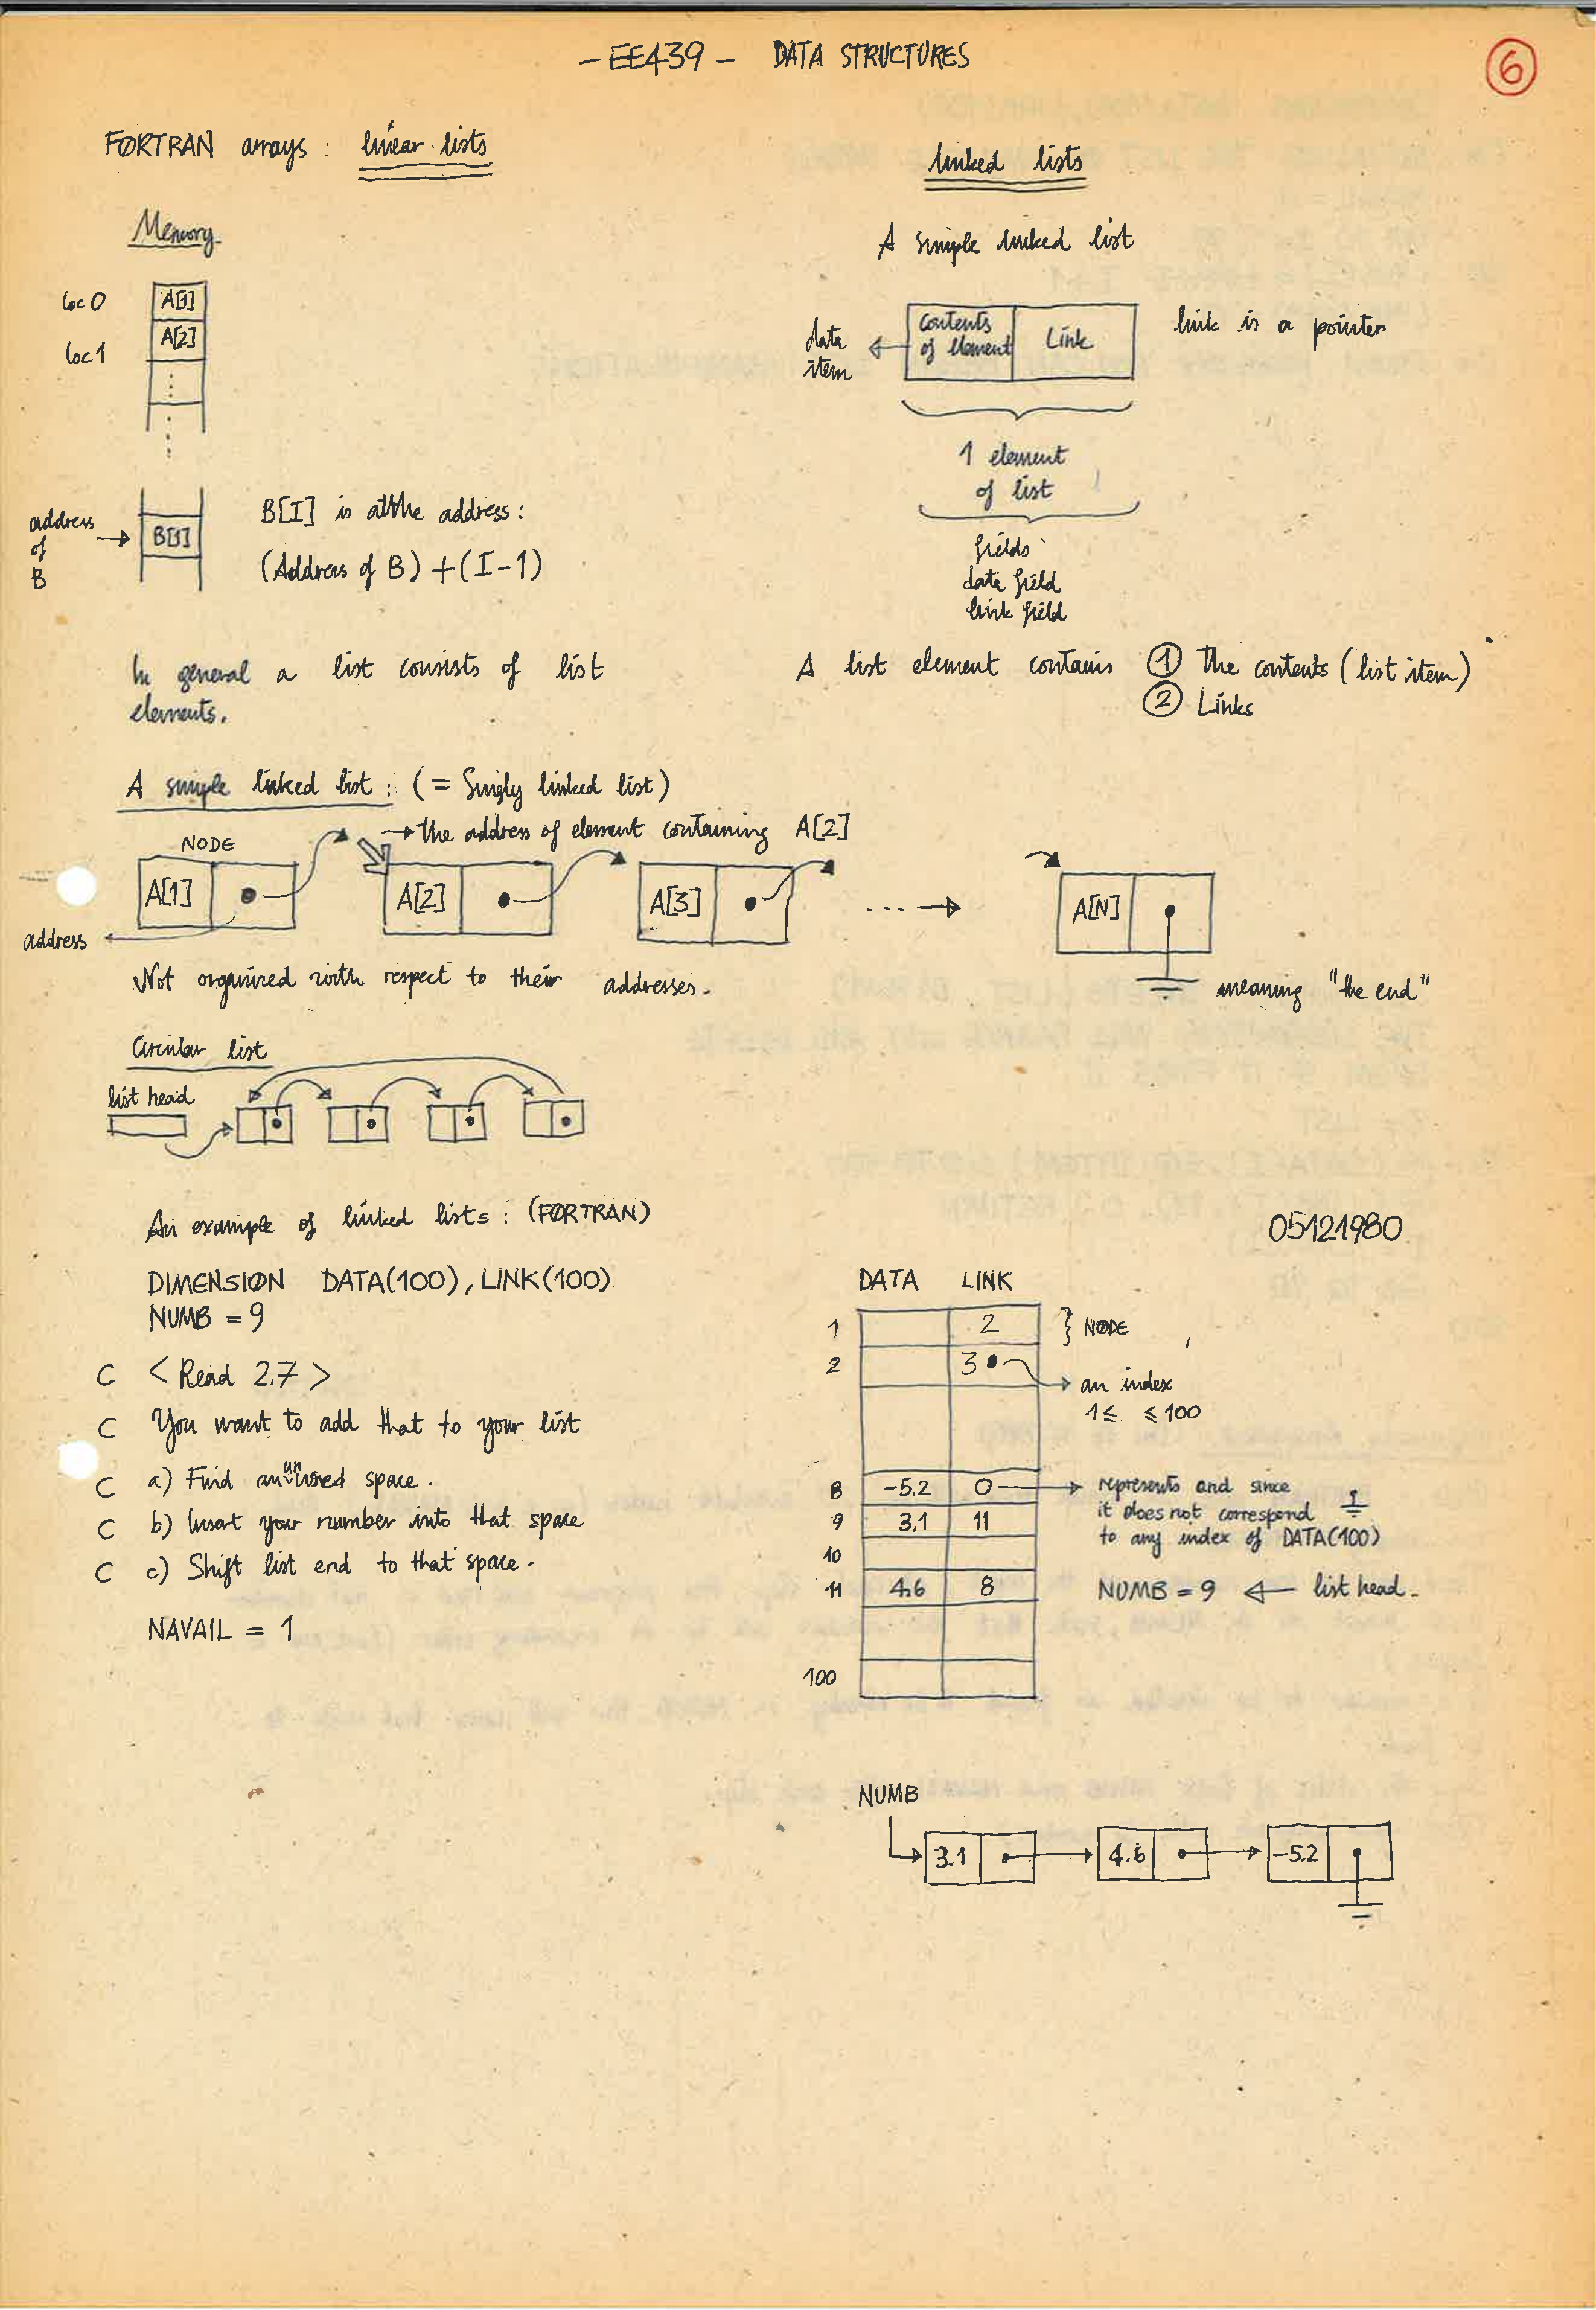 - EE439 - DATA STRUCTURES
6
FORTRAN arrays : linear lists
Memory
loc 0 A[1]
loc 1 A[2]
address of B → B[1]
B[I] is at the address :
(Address of B) + (I-1)
In general a list consists of list
elements.
linked lists
A simple linked list
data item
contents of element
Link
link is a pointer
1 element
of list
fields
data field
link field
A list element contains ① The contents (list item)
② Links
A simple linked list : (= Singly linked list)
→ the address of element containing A[2]
NODE
A[1] A[2] A[3] ... → A[N]
address
Not organized with respect to their addresses.
meaning "the end"
Circular list
list head
An example of linked lists : (FORTRAN)
05121980
DIMENSION DATA(100), LINK(100)
NUMB = 9
C < Read 2.7 >
C You want to add that to your list
C a) Find an unused space.
C b) Insert your number into that space
C c) Shift list end to that space.
NAVAIL = 1
DATA LINK
1 2 } NODE
2 3 → an index
1 ≤ ≤ 100
8 -5.2 0 → represents and since
it does not correspond
to any index of DATA(100)
9 3.1 11
10
11 4.6 8
NUMB = 9 ← list head.
100
NUMB
3.1 4.6 -5.2